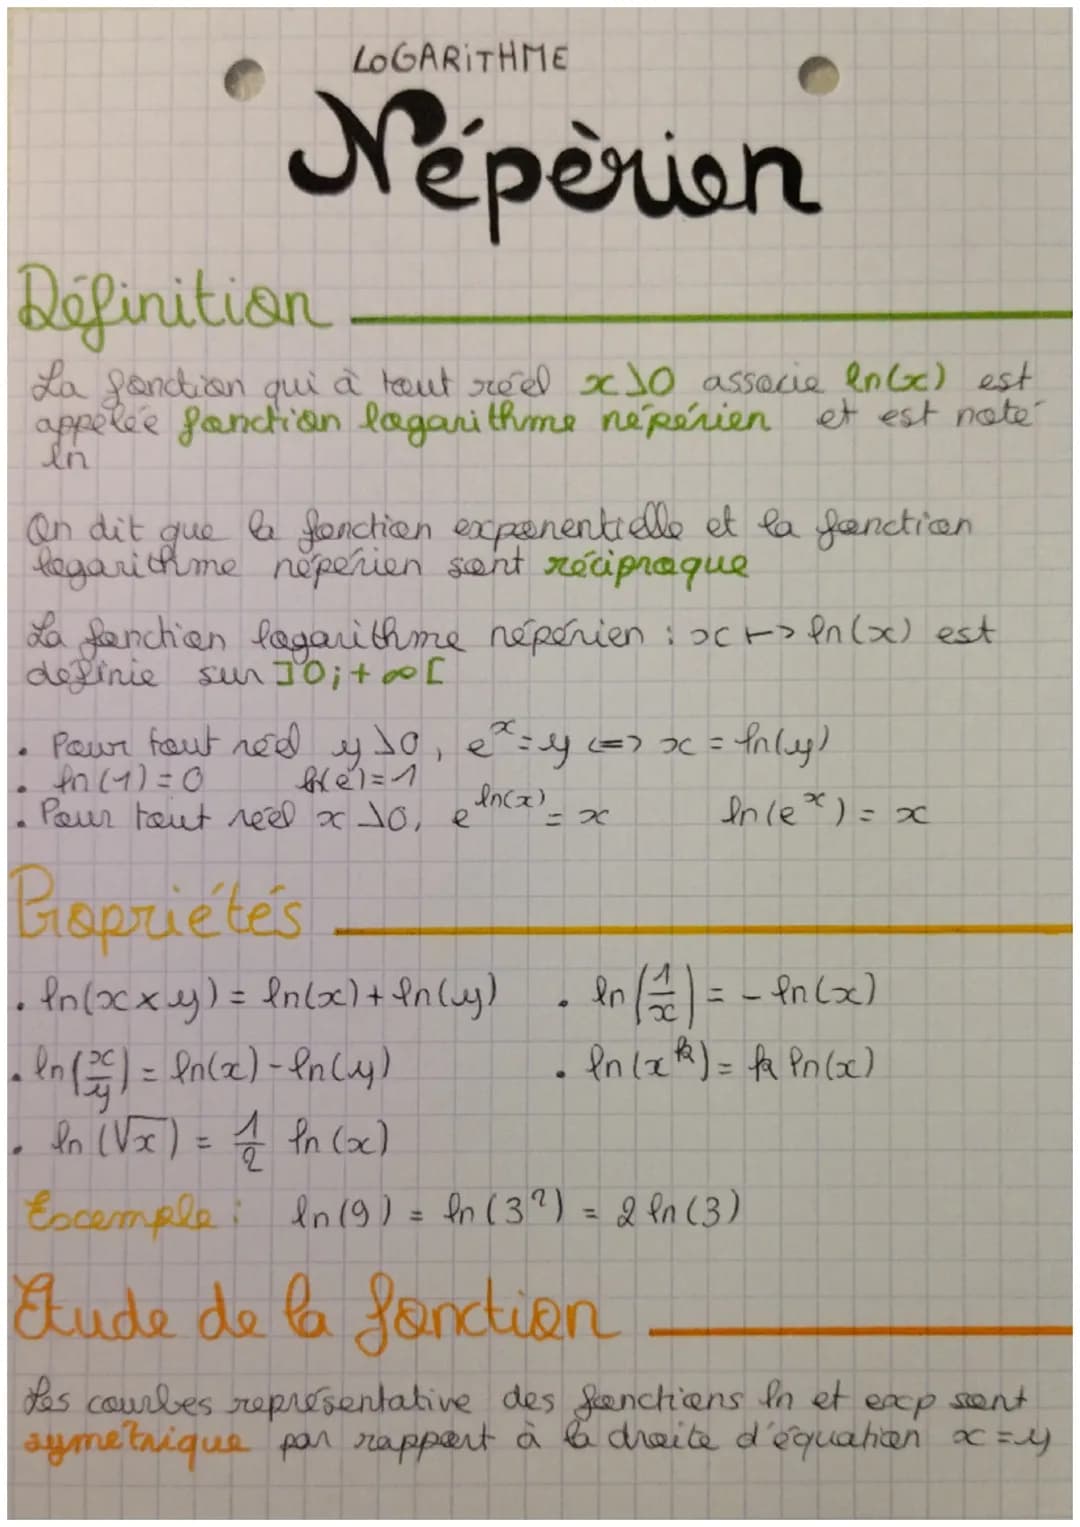 LOGARITHME
Népèrien
Définition
La fonction qui à tout réel x>0 associe ln(x) est
appelée fonction logarithme népérien et est noté
ln
On dit que la fonction exponentielle et la fonction
logarithme népérien sont réciproque
La fonction logarithme népérien : x ↦ ln(x) est
definie sur ]0;+∞[
• Pour tout réel y>0, e^x = y <=> x = ln(y)
• ln(1)=0 ln(e)=1
• Pour tout réel x>0, e^ln(x) = x ln(e^x) = x
Propriétés
• ln(x×y) = ln(x)+ln(y) • ln(1/x) = -ln(x)
• ln(x/y) = ln(x)-ln(y) • ln(x^k) = k ln(x)
• ln(√x) = 1/2 ln(x)
Exemple : ln(9) = ln(3²) = 2 ln(3)
Etude de la fonction
Les courbes représentative des fonctions ln et exp sont
symétrique par rapport à la droite d'équation x=y